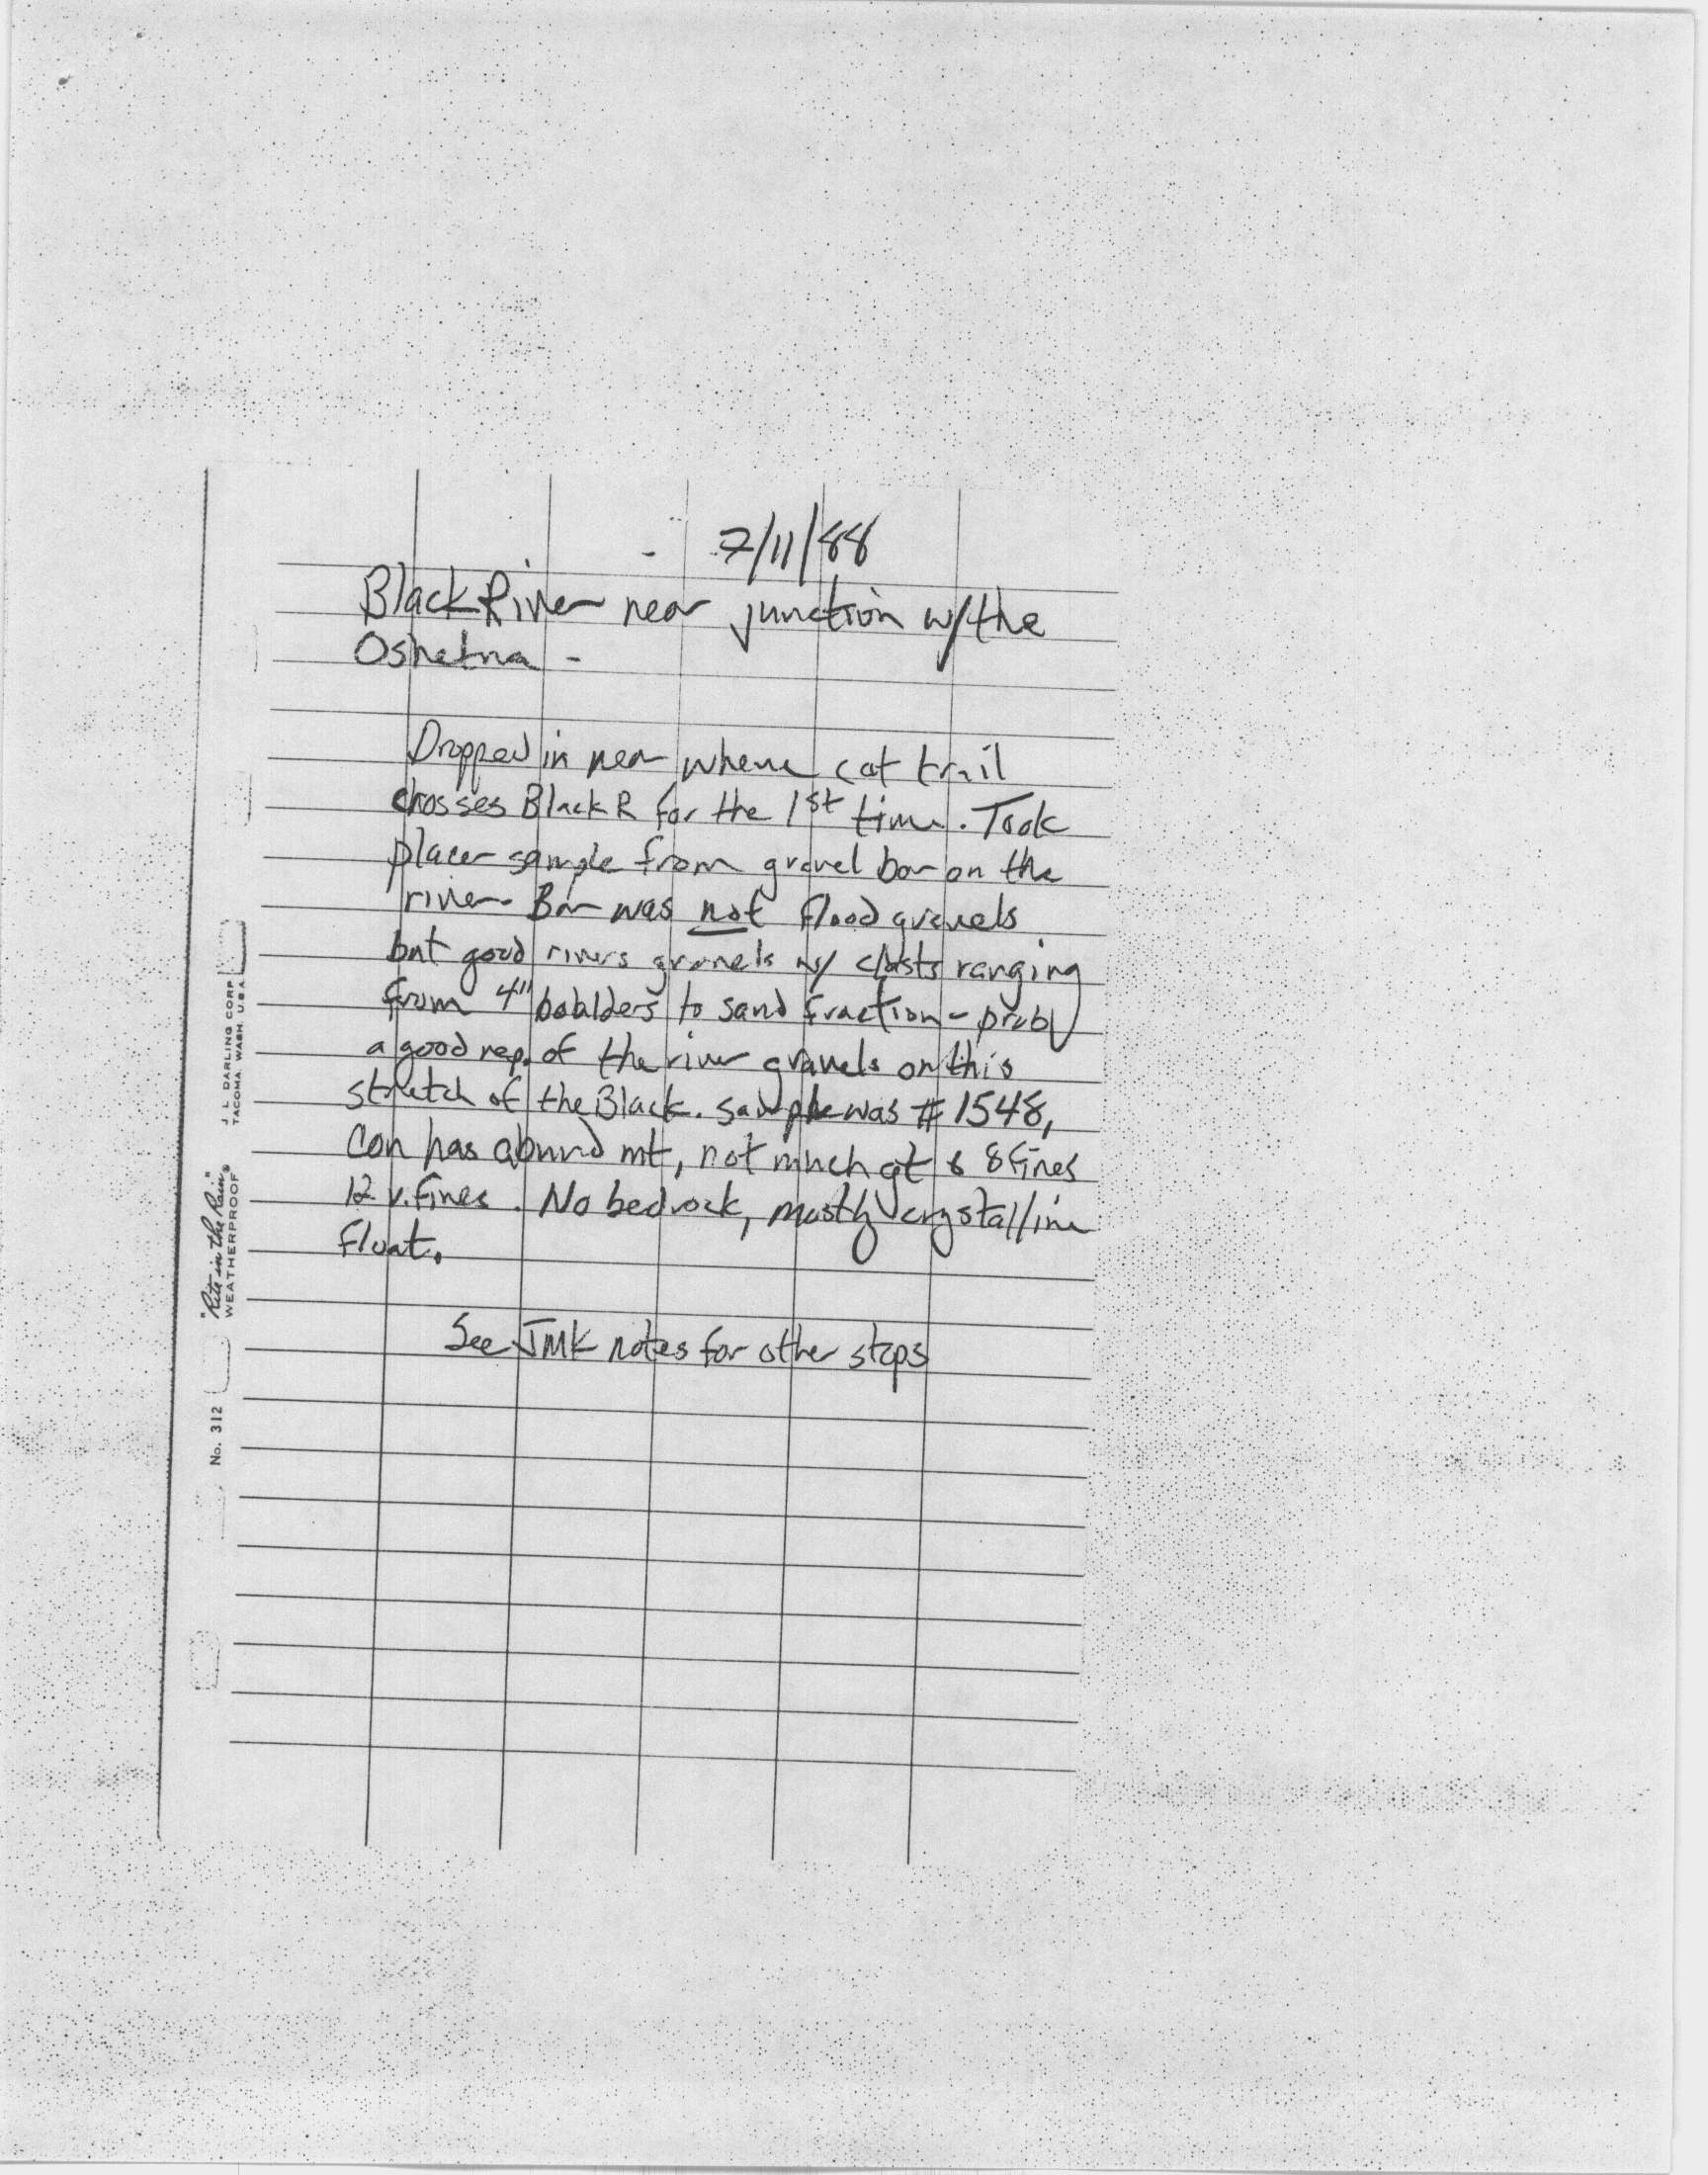 7/11/88
Black River near junction w/the
Oshetna -
Dropped in near where cat trail
crosses Black R for the 1st time. Took
placer sample from gravel bar on the
river. Bar was not flood gravels
but good rivers gravels w/ clasts ranging
from 4" boulders to sand fraction - probl
a good rep. of the river gravels on this
stretch of the Black. Sample was # 1548,
Con has abund mt, not much gt & 8 fines
12 v. fines. No bedrock, mostly crystalline
float.
See JMK notes for other stops
J. L. DARLING CORP.
TACOMA WASH U.S.A.
"Rite in the Rain"
WEATHERPROOF
No. 312